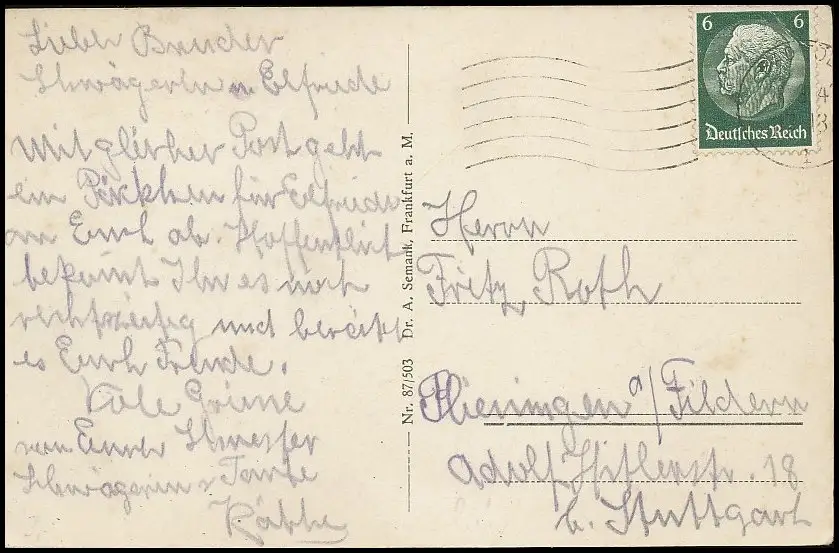 Lieber Bruder
Schwägerin u. Elfriede
Mit gleicher Post geht
ein Päckchen für Elfriede
an Euch ab. Hoffentlich
bekommt Ihr es noch
rechtzeitig und bereitet
es Euch Freude.
Viele Grüsse
von Eurer Schwester
Schwägerin u Tante
Käthe
Nr. 87/503 Dr. A. Semank, Frankfurt a. M.
6 6
Deutsches Reich
Herrn
Fritz Roth
Plieningen a/Fildern
Adolf Hitlerstr. 18
b. Stuttgart